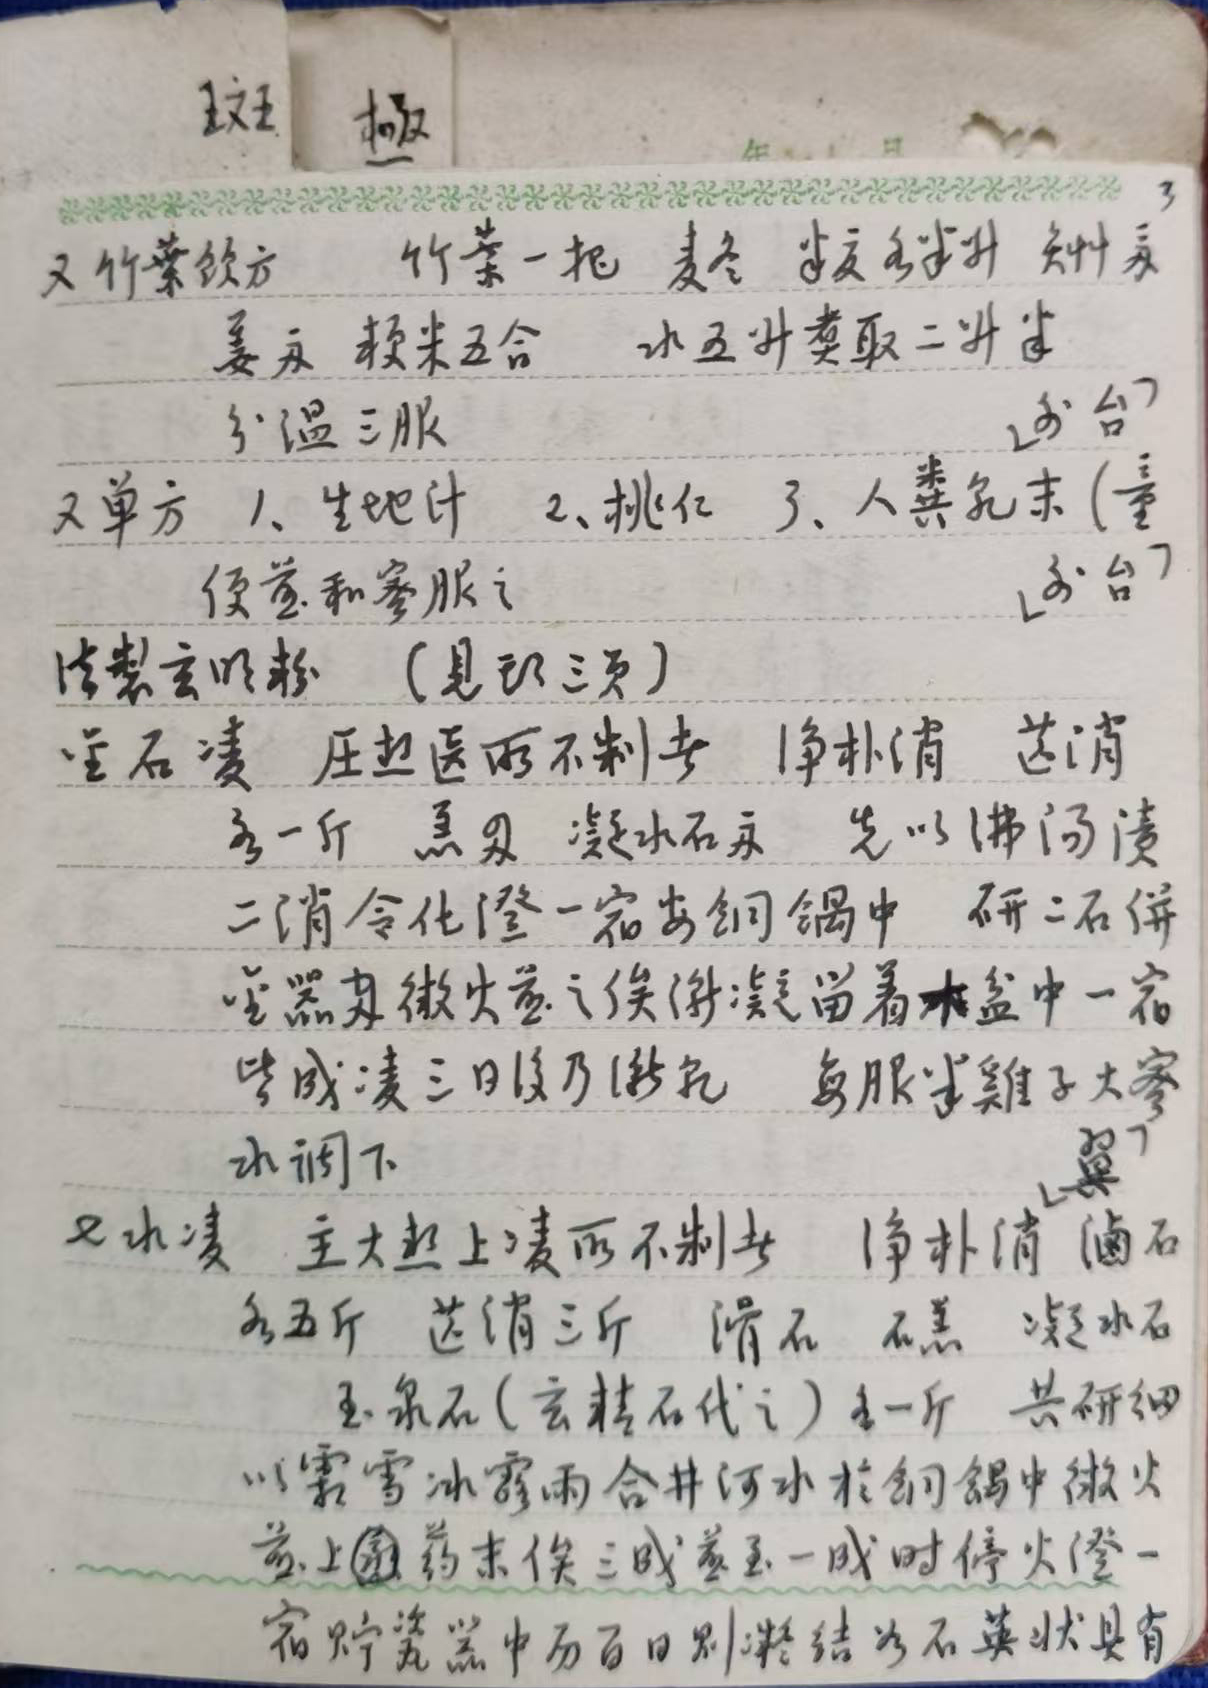 斑 極
年 月
3
又竹葉飲方 竹葉一把 麦冬 半夏各半升 炙草
姜 粳米五合 水五升煑取二升半
分温三服 「外台」
又单方 1、生地汁 2、桃仁 3、人糞乾末(童
便煎和蜜服之 「外台」
法製玄明粉 (見 三页)
金石凌 压热医所不制者 净朴消 芒消
各一斤 羔 凝水石 先以沸汤渍
二消令化澄一宿安銅鍋中 研二石併
金器 微火煎之俟漸凝留着木盆中一宿
皆成凌三日後乃漸乾 每服半雞子大蜜
水调下 「翼」
七水凌 主大热上凌所不制者 净朴消 滷石
各五斤 芒消三斤 滑石 石羔 凝水石
玉泉石(玄精石代之)各一斤 共研细
以霜雪冰露雨合井河水於銅鍋中微火
煎上 药末俟三成煎至一成时停火澄一
宿贮瓷器中历百日则凝结如石英状具有